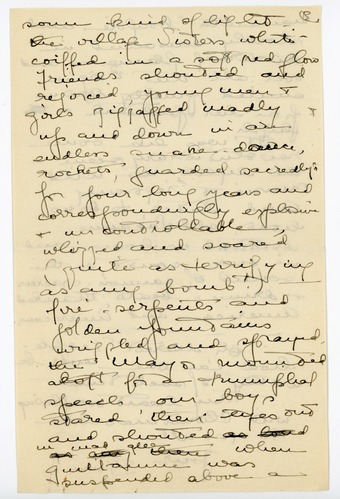 some kind of lighted 8.
the village Sisters white-
coiffed in a soft red glow
Friends shouted and
rejoiced, young men +
girls zigzagged madly
up and down in an
endless snake-dance,
rockets, guarded sacredly
for four long years and
correspondingly explosive
+ uncontrollable,
whizzed and soared
(quite as terrifying
as any bomb!)
fire-serpents and
golden fountains
wriggled and sprayed.
the Mayor mounted
aloft for a triumphal
speech our boys
stared their eyes out
and shouted
in mad glee when
Guillaume was
suspended above a